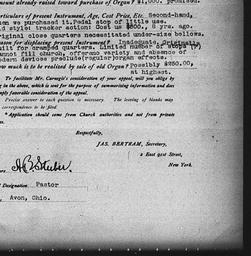 mount already raised toward purchase of Organ? $1,000. promised.
rticulars of present Instrument, Age, Cost Price, Etc. Second-hand,
en we purchased it. Pedal stop of little use.
old style: tracker action: Cost us $600., yrs. ago.
riginal close quarters necessitated under-size bellows.
eason for displacing present Instrument? Inadequate. Originally
built for cramped quarters. Limited number of stops (7)
annot fill church, offer no variety and absence of
modern devices preclude regular organ effects.
ow much is to be realised by sale of old Organ? Possibly $250.00,
at highest.
To facilitate Mr. Carnegie's consideration of your appeal, will you oblige by
in the above, which is sent for the purpose of summarising information and does
ply favorable consideration of the appeal.
Precise answer to each question is necessary. The leaving of blanks may
correspondence to be filed
* Application should come from Church authorities and not from private
Respectfully,
JAS. BERTRAM, Secretary,
2 East 91st Street,
New York.
Designation Pastor
Avon, Ohio.